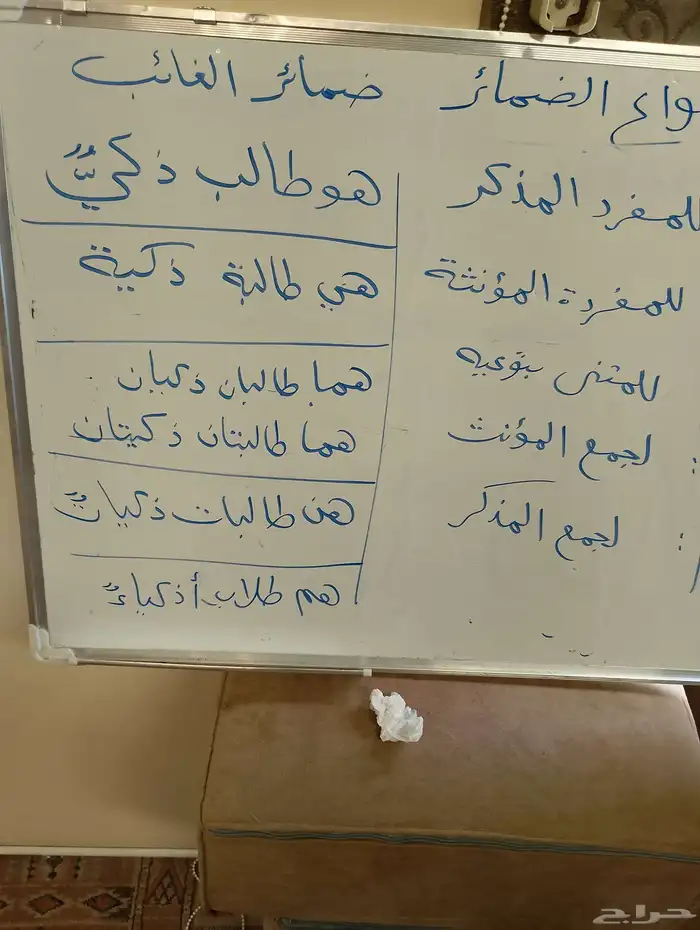 أنواع الضمائر ضمائر الغائب
للمفرد المذكر هو طالب ذكيٌّ
للمفردة المؤنثة هي طالبة ذكية
للمثنى بنوعيه هما طالبان ذكيان
هما طالبتان ذكيتان
لجمع المؤنث : هن طالبات ذكياتٌ
لجمع المذكر : هم طلاب أذكياءٌ
حراج